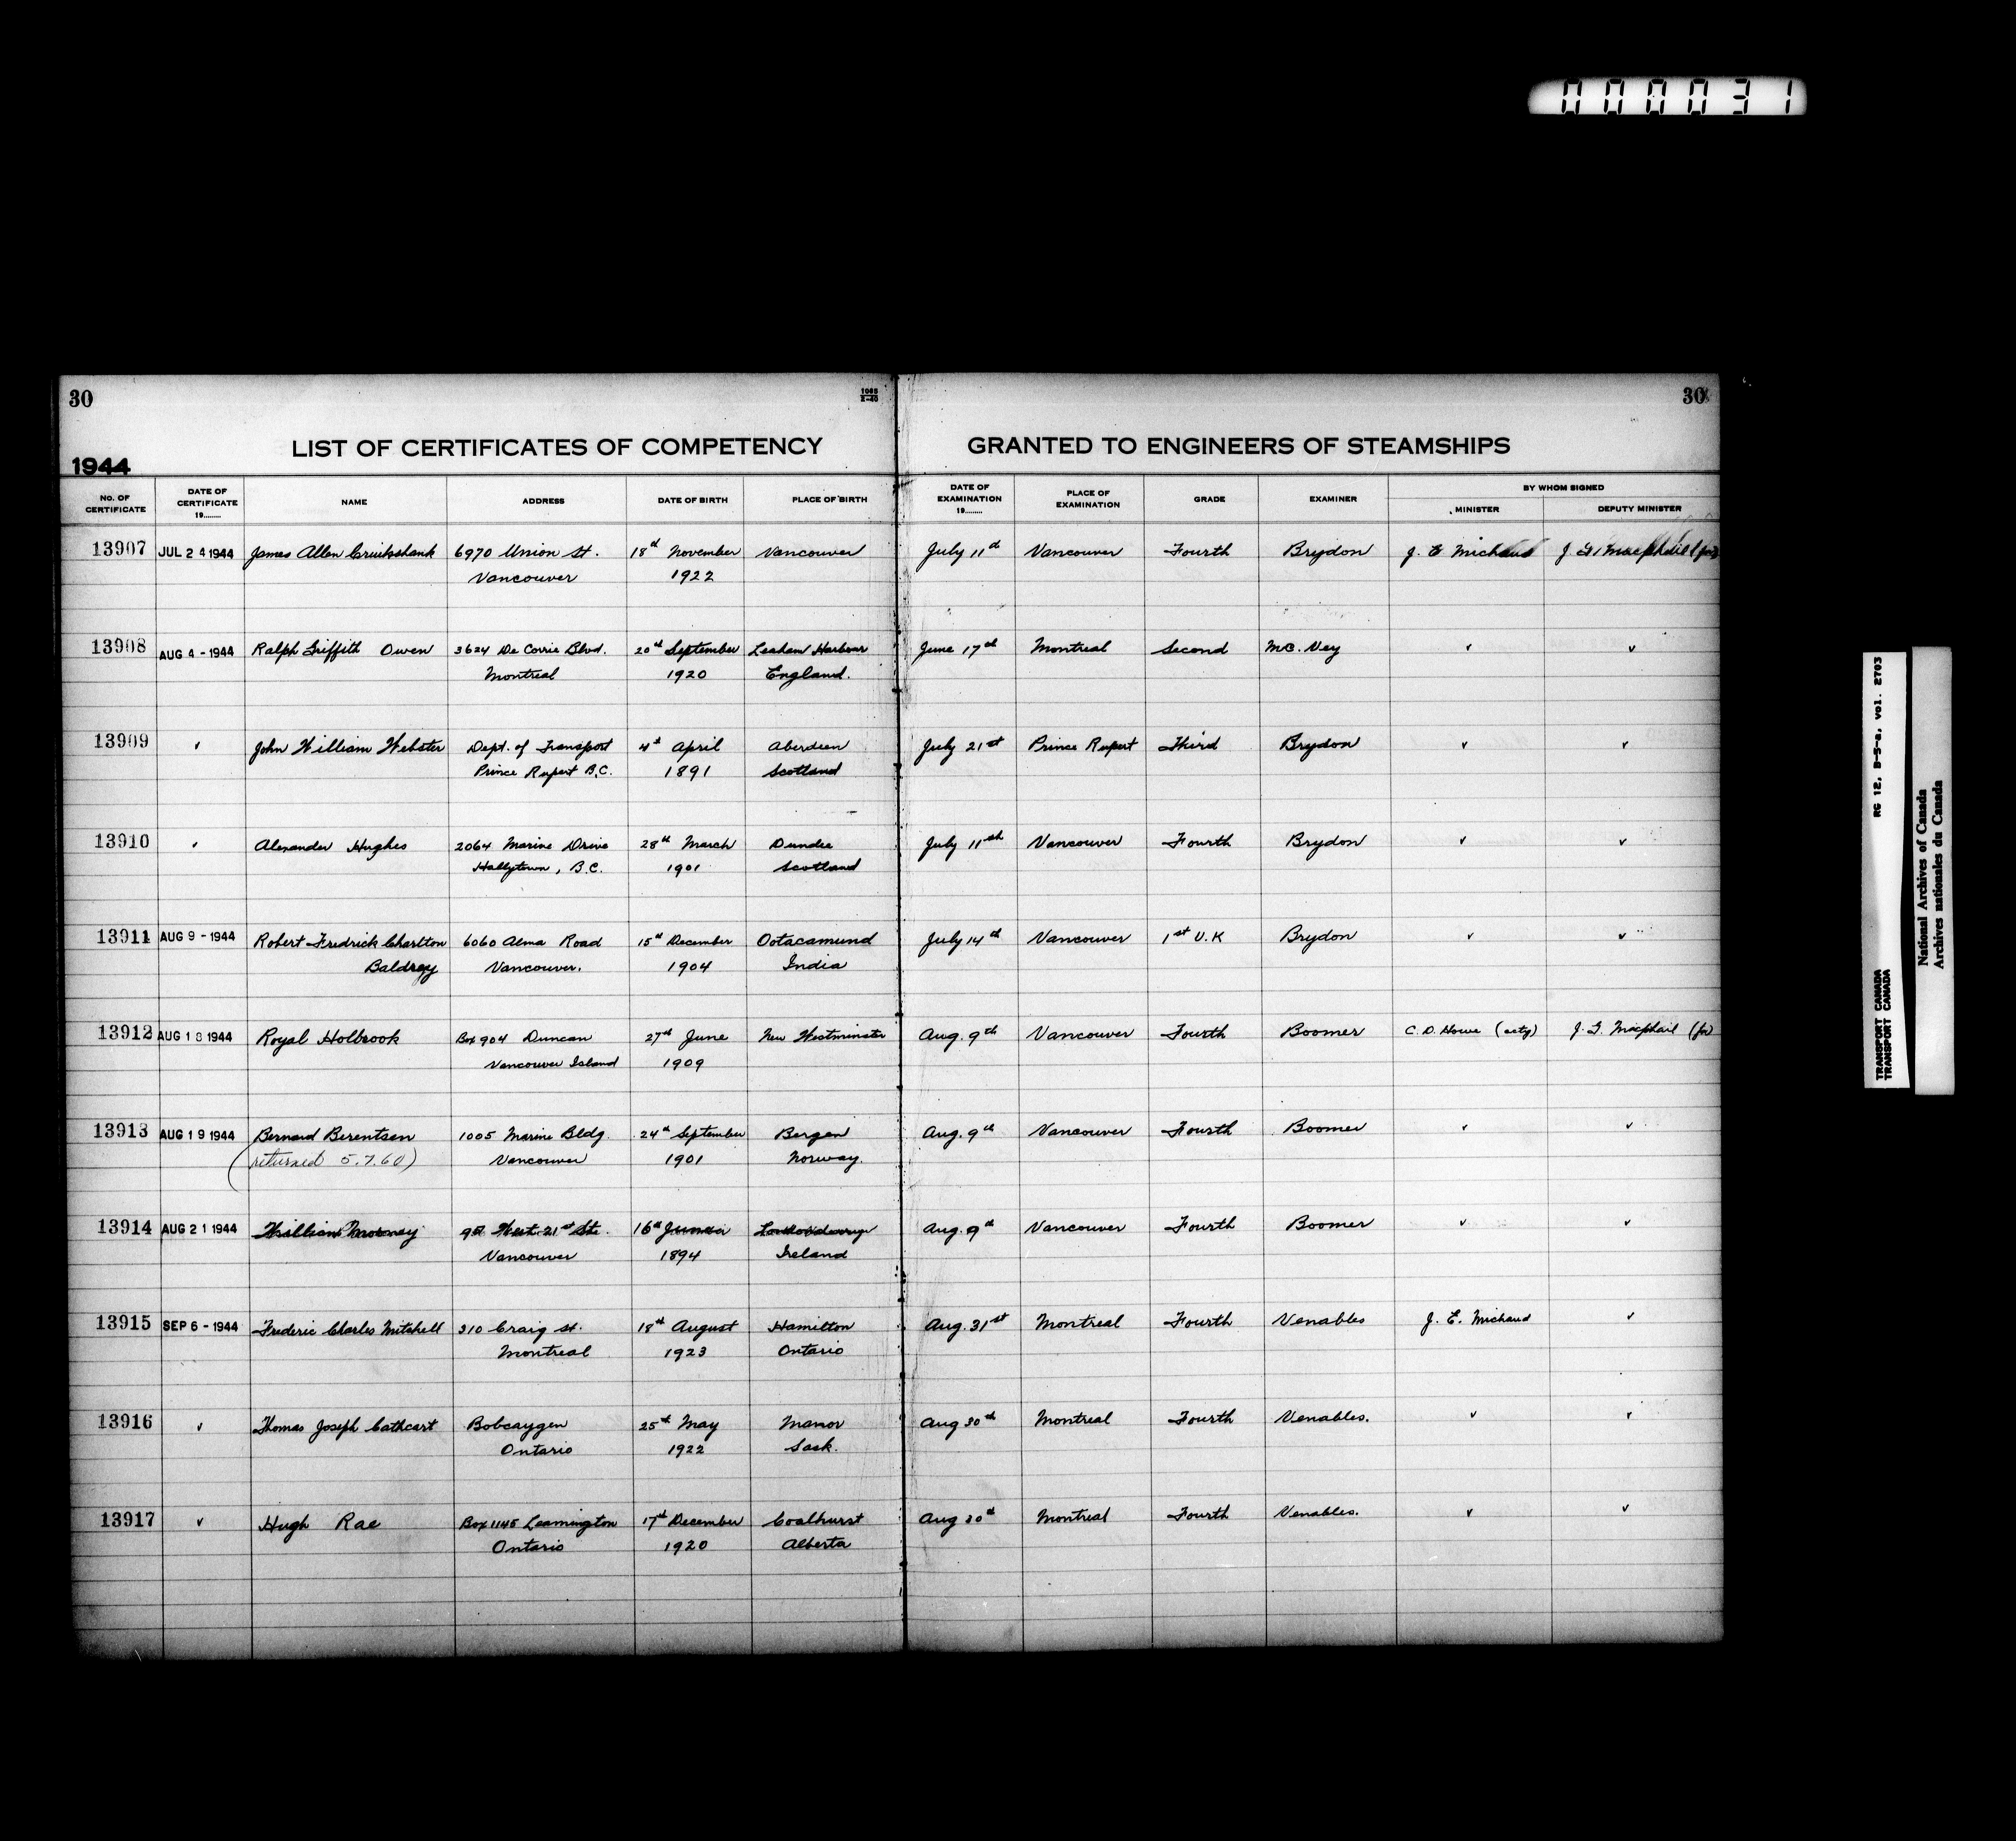 000031
30
1065
2-40
30
LIST OF CERTIFICATES OF COMPETENCY GRANTED TO ENGINEERS OF STEAMSHIPS
1944
No. OF CERTIFICATE
DATE OF CERTIFICATE 19........
NAME
ADDRESS
DATE OF BIRTH
PLACE OF BIRTH
DATE OF EXAMINATION 19........
PLACE OF EXAMINATION
GRADE
EXAMINER
BY WHOM SIGNED
MINISTER
DEPUTY MINISTER
13907 JUL 24 1944 James Allen Cruickshank 6970 Union St. 18th November Vancouver July 11th Vancouver Fourth Brydon J. E. Michaud J. G. Macphail (for)
Vancouver 1922
13908 AUG 4 - 1944 Ralph Griffith Owen 3624 De Corrie Blvd. 20th September Harbour June 17th Montreal Second Mc. Vey ✓ ✓
Montreal 1920 England.
13909 ✓ John William Webster Dept. of Transport 4th April Aberdeen July 21st Prince Rupert Third Brydon ✓ ✓
Prince Rupert B.C. 1891 Scotland
13910 ✓ Alexander Hughes 2064 Marine Drive 28th March Dundee July 11th Vancouver Fourth Brydon ✓ ✓
B.C. 1901 Scotland
13911 AUG 9 - 1944 Robert Fredrick Charlton 6060 Alma Road 15th December Ootacamund July 14th Vancouver 1st U.K Brydon ✓ ✓
Baldrey Vancouver. 1904 India
13912 AUG 18 1944 Royal Holbrook Box 904 Duncan 27th June New Westminster Aug. 9th Vancouver Fourth Boomer C. D. Howe (actg) J. G. Macphail (for)
Vancouver Island 1909
13913 AUG 19 1944 Bernard Berentsen 1005 Marine Bldg. 24th September Bergen Aug. 9th Vancouver Fourth Boomer ✓ ✓
(returned 5.7.60) Vancouver 1901 Norway.
13914 AUG 21 1944 William West 21st St. 16th Ireland Aug. 9th Vancouver Fourth Boomer ✓ ✓
Vancouver 1894
13915 SEP 6 - 1944 Frederic Charles Mitchell 310 Craig St. 18th August Hamilton Aug. 31st Montreal Fourth Venables J. E. Michaud ✓
Montreal 1923 Ontario
13916 ✓ Thomas Joseph Cathcart Bobcaygen 25th May Manor Aug 30th Montreal Fourth Venables. ✓ ✓
Ontario 1922 Sask.
13917 ✓ Hugh Rae Box 1145 Leamington 17th December Coalhurst Aug 30th Montreal Fourth Venables. ✓ ✓
Ontario 1920 Alberta
RG 12, B-5-a, vol. 2703
TRANSPORT CANADA
TRANSPORT CANADA
National Archives of Canada
Archives nationales du Canada